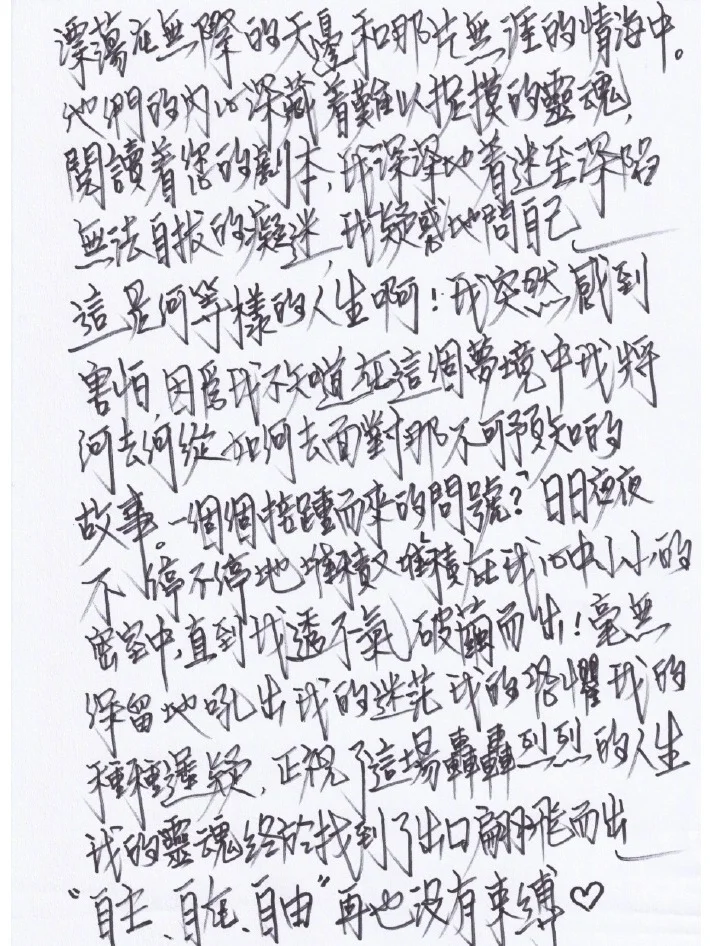 漂蕩在無際的天邊和那片無涯的情海中。
他們的內心深藏着難以捉摸的靈魂，
閱讀着您的劇本，我深深地着迷至深陷
無法自拔的癡迷，我疑惑地問自己、
這是何等樣的人生啊！我突然感到
害怕，因為我不知道在這個夢境中我將
何去何從 如何去面對那不可預知的
故事。一個個接踵而來的問號？日日夜夜
不停不停地堆積又堆積在我心中小小的
密室中，直到我透不氣 破繭而出！毫無
保留地吼出我的迷茫 我的恐懼 我的
種種遲疑，正視了這場轟轟烈烈的人生
我的靈魂終於找到了出口翩飛而出
“自主、自在、自由”再也沒有束縛♡